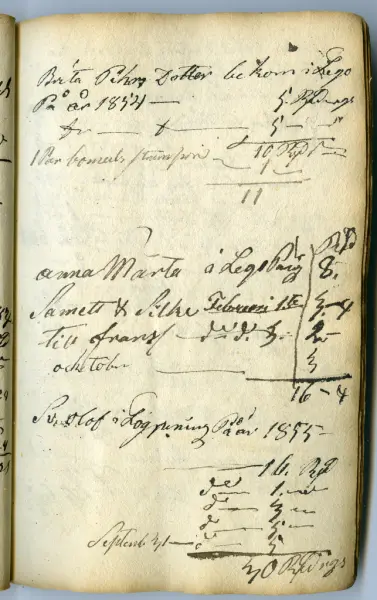 Brita Pehrs Dotter bekom i Lego
På år 1854 — 5 Rd Rgs
5 —
1 Par bomuls strumpor 10 Rd
1
11
Rd
anna Märta i Lego Päng 8.
Samett & Silke Februari 1.ta 3-4
till frans 3. 2-
ocktober — 3
16-4
Sv. Olof i Lögpening På år 1855
— 16. Rd
do 1.
do 3
do 5
Septemb 31 — 5
30 Rd Rgs